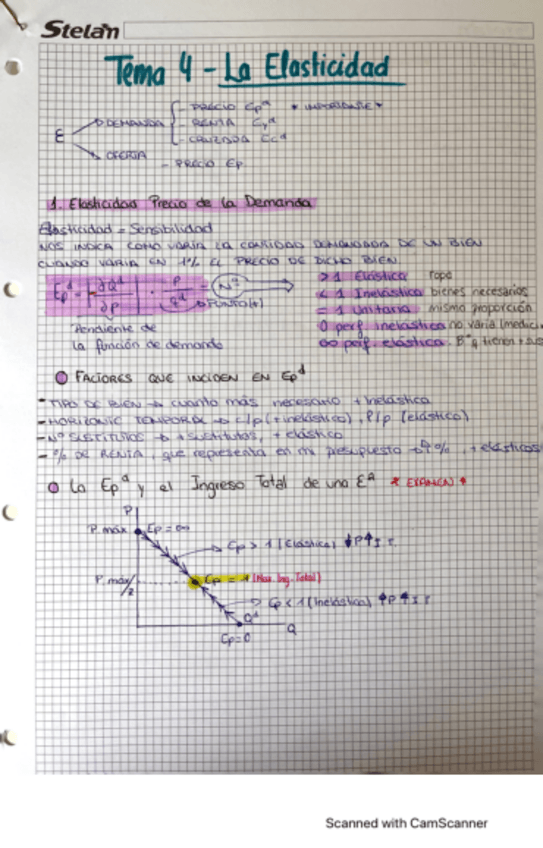 Stelan
Tema 4 - La Elasticidad
PRECIO Ep^d * IMPORTANTE *
DEMANDA RENTA Ey^d
CRUZADA Ec^d
E
OFERTA
- PRECIO Ep
1. Elasticidad Precio de la Demanda
Elasticidad = Sensibilidad
NOS INDICA COMO VARIA LA CANTIDAD DEMANDADA DE UN BIEN
CUANDO VARIA EN 1% EL PRECIO DE DICHO BIEN
Ep^d = |∂Q^d / ∂P| · P / Q^d = Nº
PUNTO(+)
Pendiente de
la función de demanda
> 1 Elástica ropa
< 1 Inelástica bienes necesarios
= 1 Unitaria misma proporción
0 perf. inelástica no varia (medic
∞ perf. elástica. Bº q tienen + sus
FACTORES QUE INCIDEN EN Ep^d
- TIPO DE BIEN → cuanto más necesario + inelástica
- HORIZONTE TEMPORAL → c/p (+ inelástico), l/p (elástico)
- Nº SUSTITUTOS → + sustitutos, + elástico
- % DE RENTA, que representa en mi presupuesto → ↑%, + elásticos
La Ep^d y el Ingreso Total de una E^a * EXAMEN *
P
P. máx Ep = ∞
Ep > 1 (Elástica) ↓P↑I.T.
P. máx/2 Ep = 1 (Max. Ing. Total)
Ep < 1 (Inelástica) ↑P↑I.T
Q^d
Ep=0
Q
Scanned with CamScanner